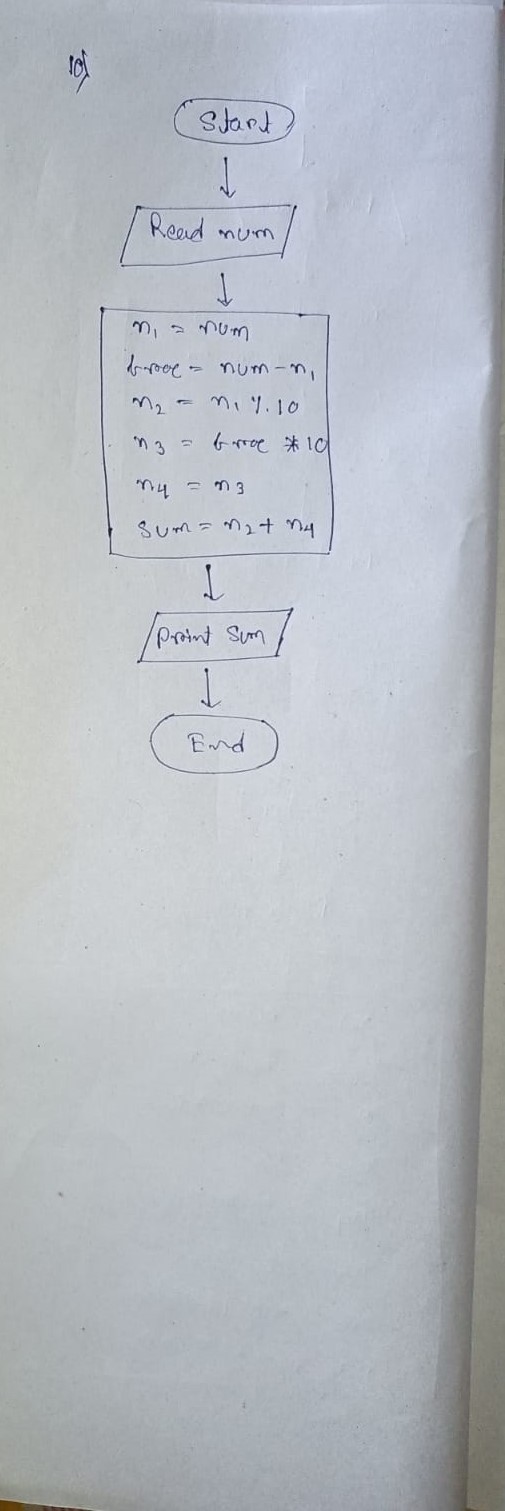 10)
Start
Read num
n1 = num
frac = num - n1
n2 = n1 % 10
n3 = frac * 10
n4 = n3
Sum = n2 + n4
Print Sum
End